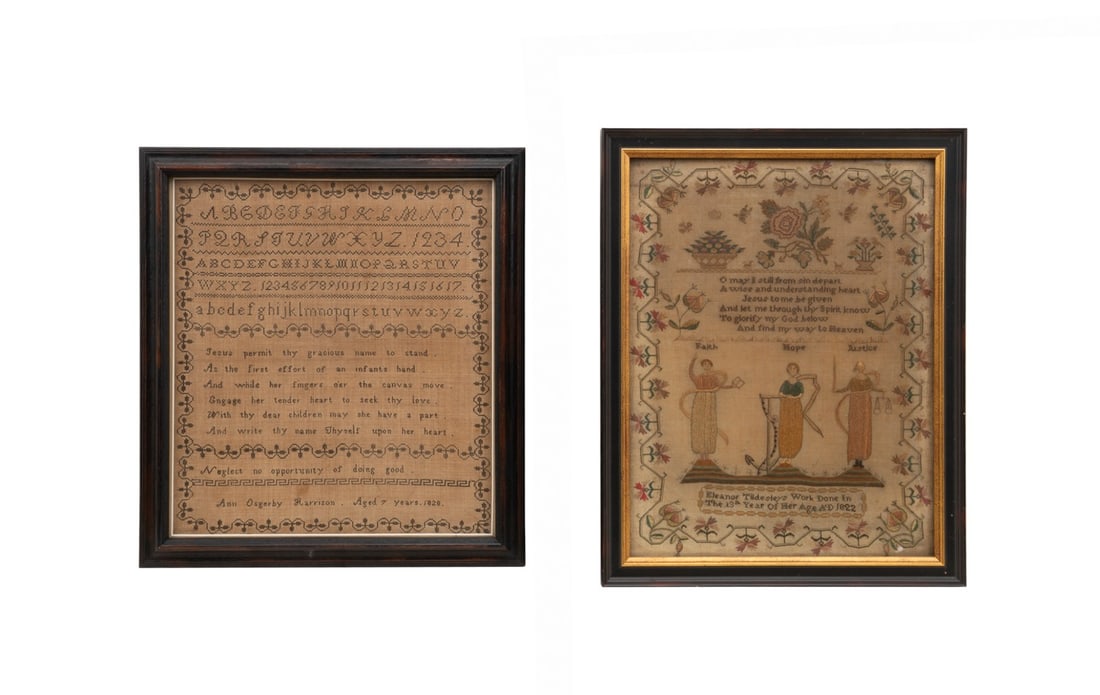 ABCDEFGHIKLMNO
PQRSTUVWXYZ.1234.
ABCDEFGHIJKLMNOPQRSTUV
WXYZ.1234567891011121314151617.
abcdefghijklmnopqrstuvwxyz.
Jesus permit thy gracious name to stand.
As the first effort of an infants hand.
And while her fingers o'er the canvas move.
Engage her tender heart to seek thy love.
With thy dear children may she have a part.
And write thy name Thyself upon her heart.
Neglect no opportunity of doing good.
Ann Osgerby Harrison. Aged 7 years. 1828.
O may I still from sin depart
A wise and understanding heart
Jesus to me be given
And let me through thy Spirit know
To glorify my God below
And find my way to Heaven
Faith Hope Justice
Eleanor Tildesleys Work Done In
The 13th Year Of Her Age AD 1822